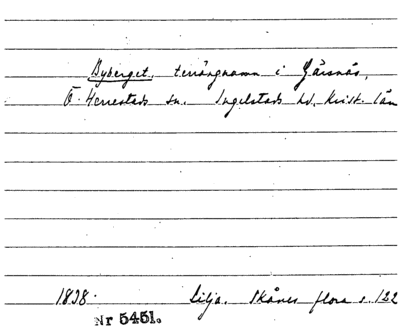 Byberget, terrängnamn i Gärsnäs,
Ö. Herrestads sn. Ingelstads hd. Krist. län
1838. Lilja. Skånes flora s. 122
Nr 5451.